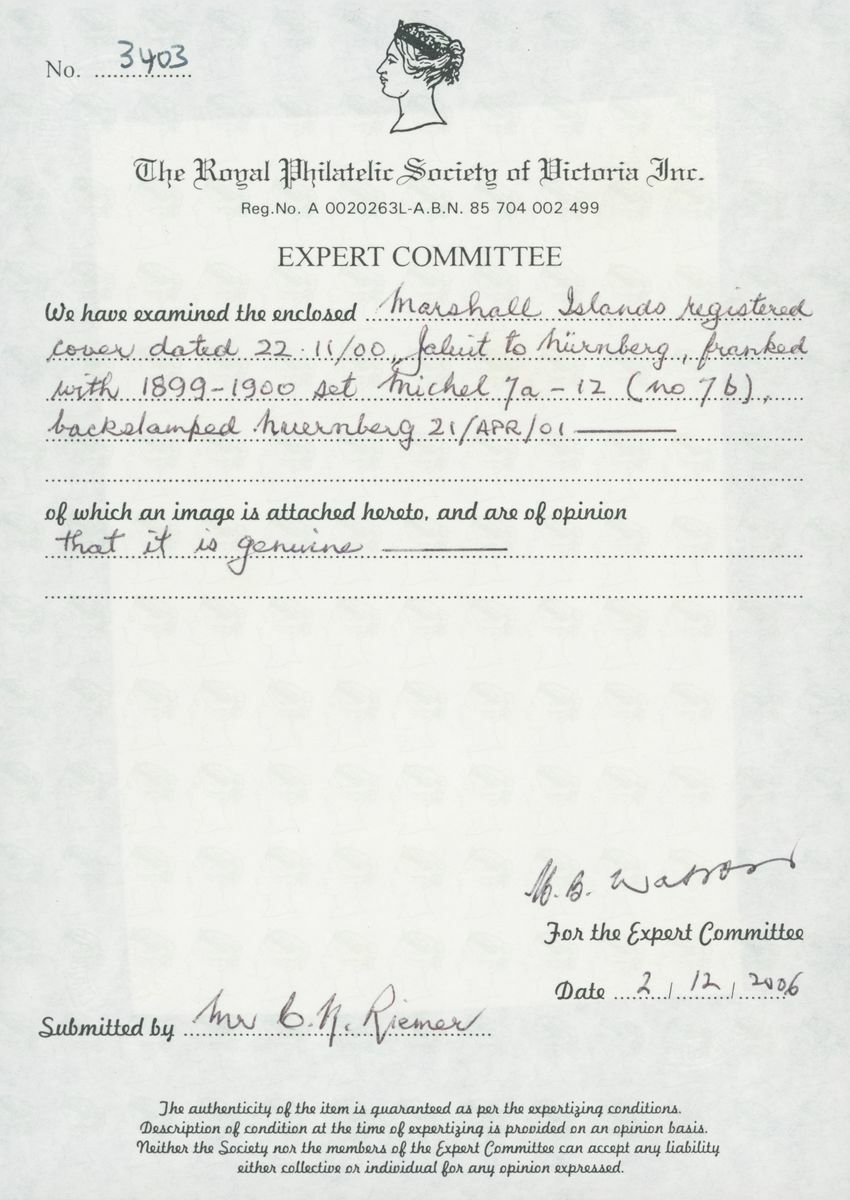 No. 3403
The Royal Philatelic Society of Victoria Inc.
Reg.No. A 0020263L-A.B.N. 85 704 002 499
EXPERT COMMITTEE
We have examined the enclosed Marshall Islands registered
cover dated 22·11/00, Jaluit to Nürnberg, franked
with 1899-1900 set Michel 7a-12 (no 7b),
backstamped Nuernberg 21/APR/01
of which an image is attached hereto, and are of opinion
that it is genuine
For the Expert Committee
Date 2/12/2006
Submitted by Mr C. N. Riemer
The authenticity of the item is guaranteed as per the expertizing conditions.
Description of condition at the time of expertizing is provided on an opinion basis.
Neither the Society nor the members of the Expert Committee can accept any liability
either collective or individual for any opinion expressed.